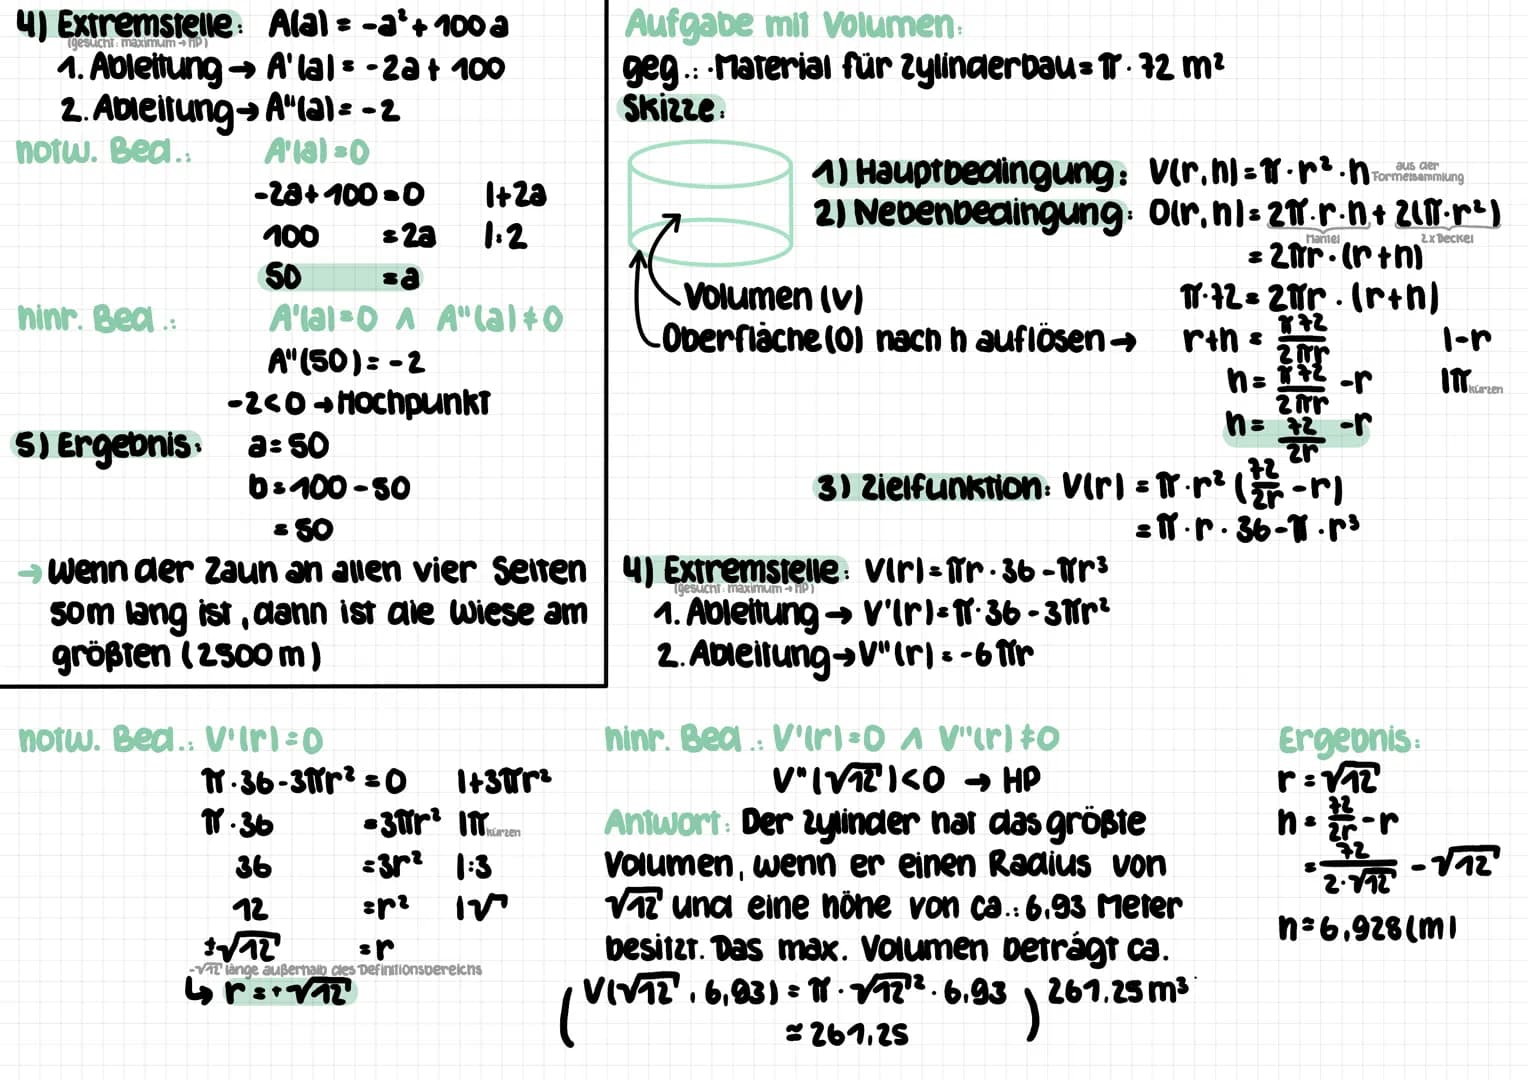 4) Extremstelle: A(a) = -a² + 100a
(gesucht: maximum → HP)
1. Ableitung → A'(a) = -2a + 100
2. Ableitung → A''(a) = -2
notw. Bed.: A'(a) = 0
-2a + 100 = 0 |+2a
100 = 2a |:2
50 = a
hinr. Bed.: A'(a) = 0 ∧ A''(a) ≠ 0
A''(50) = -2
-2 < 0 → Hochpunkt
5) Ergebnis: a = 50
b = 100 - 50
= 50
→ Wenn der Zaun an allen vier Seiten
50m lang ist, dann ist die Wiese am
größten (2500 m)
Aufgabe mit Volumen:
geg.: · Material für Zylinderbau = π · 72 m²
Skizze:
1) Hauptbedingung: V(r,h) = π · r² · h aus der Formelsammlung
2) Nebenbedingung: O(r,h) = 2π · r · h + 2(π · r²)
Mantel 2x Deckel
= 2πr · (r+h)
Volumen (V)
π · 72 = 2πr · (r+h)
Oberfläche (O) nach h auflösen → r+h = π72/2πr |-r
h = π72/2πr - r |π kürzen
h = 72/2r - r
3) Zielfunktion: V(r) = π · r² (72/2r - r)
= π · r · 36 - π · r³
4) Extremstelle: V(r) = πr · 36 - πr³
(gesucht: maximum → HP)
1. Ableitung → V'(r) = π · 36 - 3πr²
2. Ableitung → V''(r) = -6πr
notw. Bed.: V'(r) = 0
π · 36 - 3πr² = 0 |+3πr²
π · 36 = 3πr² |π kürzen
36 = 3r² |:3
12 = r² |√
±√12 = r
-√12 länge außerhalb des Definitionsbereichs
↳ r = +√12
hinr. Bed.: V'(r) = 0 ∧ V''(r) ≠ 0
V''(√12) < 0 → HP
Antwort: Der Zylinder hat das größte
Volumen, wenn er einen Radius von
√12 und eine höhe von ca.: 6,93 Meter
besitzt. Das max. Volumen beträgt ca.
(V(√12, 6,93) = π · √12² · 6,93 ≈ 261,25) 261,25 m³
Ergebnis:
r = √12
h = 72/2r - r
= 72/2·√12 - √12
h ≈ 6,928 (m)